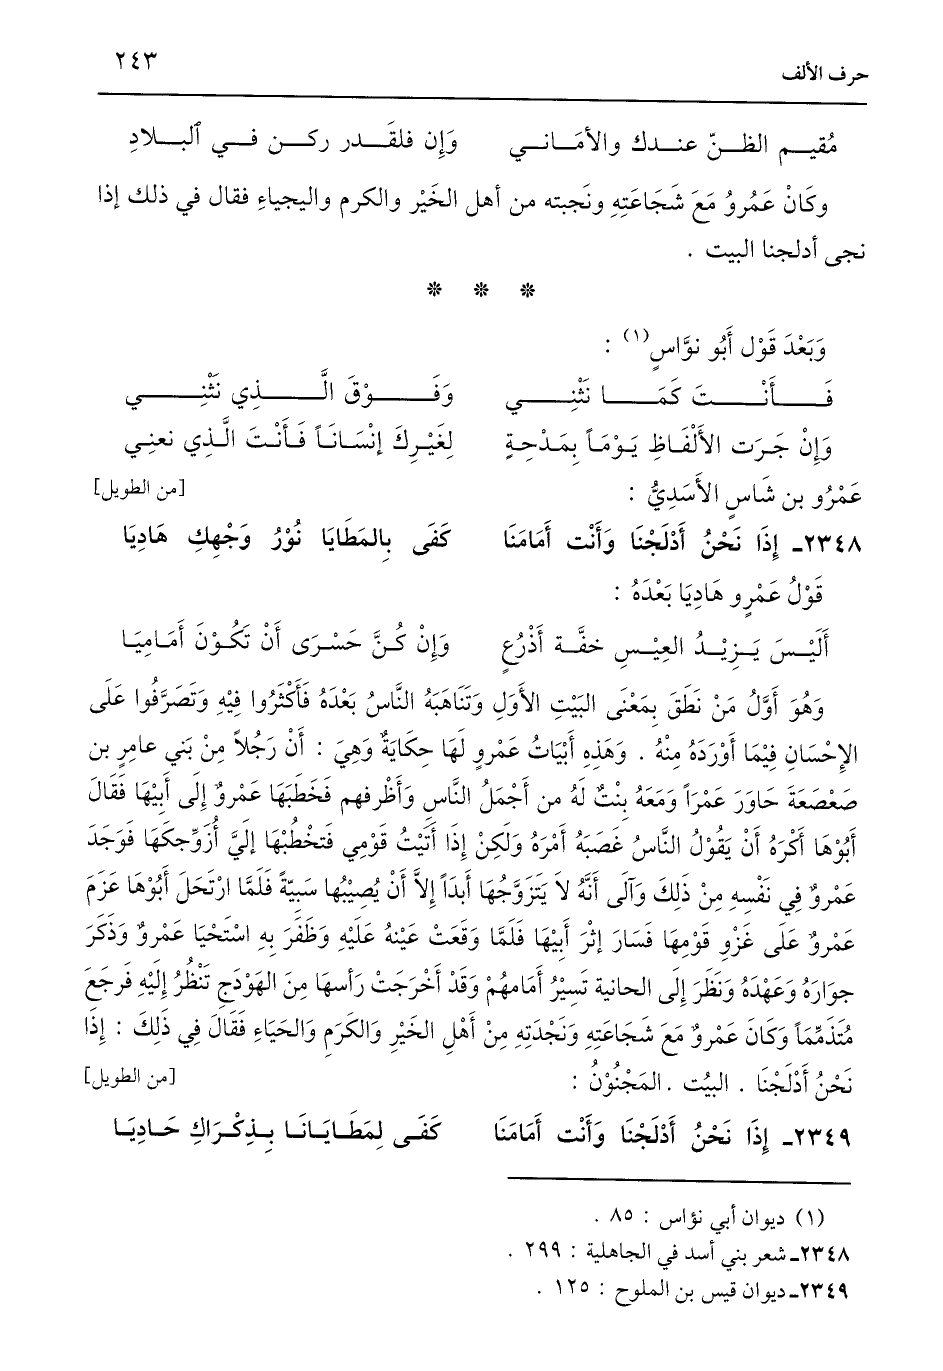 حرف الألف ٢٤٣
مُقيم الظنّ عندك والأمَاني وَإن فلقَدر ركن في ٱلبلادِ
وكَانْ عَمُرو مَعَ شَجَاعَتِهِ ونَجبته من أهل الخَيْر والكرم واليجياءِ فقال في ذلك إذا
نجى أدلجنا البيت .
* * *
وَبَعْدَ قَوْل أَبُو نوَّاسٍ(١) :
فَأَنْتَ كَمَا نَثْنِي وَفَوْقَ الَّذِي نَثْنِي
وَإِنْ جَرَت الأَلْفَاظِ يَوْمَاً بِمَدْحِةٍ لِغَيْرِكَ إنْسَانَاً فَأَنْتَ الَّذِي نعنِي
عَمْرُو بن شَاسٍ الأَسَدِيُّ : [من الطويل]
٢٣٤٨ـ إِذَا نَحْنُ أَدْلَجْنَا وَأَنْت أَمَامَنَا كَفَى بِالمَطَايَا نُوْرُ وَجْهِكِ هَادِيَا
قَوْلُ عَمْرِو هَادِيَا بَعْدَهُ :
أَلَيْسَ يَزِيْدُ العِيْسِ خفَّة أَذْرُعٍ وَإِنْ كُنَّ حَسْرَى أَنْ تَكُوْنَ أَمَامِيَا
وَهُوَ أَوَّلُ مَنْ نَطَقَ بِمَعْنَى البَيْتِ الأَوَلِ وَتَنَاهَبَهُ النَّاسُ بَعْدَهُ فَأَكْثَرُوا فِيْهِ وَتَصَرَّفُوا عَلَى
الإِحْسَانِ فِيْمَا أَوْرَدَهُ مِنْهُ . وَهَذِهِ أَبْيَاتُ عَمْرِو لَهَا حِكَايَةٌ وَهِيَ : أَنْ رَجُلاً مِنْ بَني عامِرِ بن
صَعْصَعَةَ حَاوَرَ عَمْرَاً وَمَعَهُ بِنْتٌ لَهُ من أَجْمَلُ النَّاسِ وَأَظْرفهم فَخَطَبَهَا عَمْرِوٌ إِلَى أَبِيْهَا فَقَالَ
أَبُوْهَا أَكْرَهُ أَنْ يَقُوْلُ النَّاسُ غَصَبَهُ أَمْرَهُ وَلَكِنْ إِذَا أَتَيْتُ قَوْمِي فَتخْطُبْهَا إِلَيَّ أُزَوِّجكَهَا فَوَجَدَ
عَمْروٌ فِي نَفْسِهِ مِنْ ذَلِكَ وَآلَى أَنَّهُ لاَ يَتَزَوَّجُهَا أَبدَاً إِلاَّ أَنْ يُصِيْبُها سَبِيّةً فَلَمَّا ارْتَحَلَ أَبُوْهَا عَزَمَ
عَمْروٌ عَلَى غَزْوِ قَوْمِهَا فَسَارَ إِثْرَ أَبِيْهَا فَلَمَّا وَقَعَتْ عَيْنهُ عَلَيْهِ وَظَفَرَ بِهِ اسْتَحْيَا عَمْروٌ وَذَكَرَ
جوَارَهُ وَعَهْدَهُ وَنَظَرَ إِلَى الحانية تَسِيْرُ أَمَامهُمْ وَقَدْ أَخْرَجَتْ رَأسهَا مِنَ الهَوْدَجِ تَنْظُرُ إِلَيْهِ فَرجَعَ
مُتَذَمِّمَاً وَكَانَ عَمْروٌ مَعَ شَجَاعَتِهِ وَنَجْدَتِهِ مِنْ أَهْلِ الخَيْرِ وَالكَرَمِ وَالحَيَاءِ فَقَالَ فِي ذَلِكَ : إِذَا
نَحْنُ أَدْلَجْنَا . البيُت . المَجْنُوْنُ : [من الطويل]
٢٣٤٩ـ إِذَا نَحْنُ أَدْلَجْنَا وَأَنْت أَمَامَنَا كَفَى لِمَطَايَانَا بِذِكْرَاكِ حَادِيَا
(١) ديوان أبي نؤاس : ٨٥ .
٢٣٤٨ـ شعر بني أسد في الجاهلية : ٢٩٩ .
٢٣٤٩ـ ديوان قيس بن الملوح : ١٢٥ .